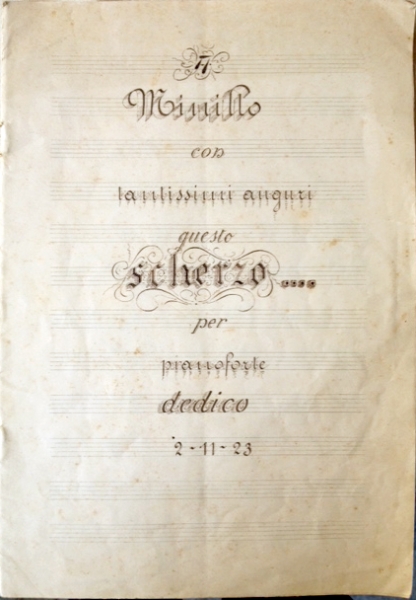 A
Minillo
con
tantissimi auguri
questo
scherzo....
per
pianoforte
dedico
2-11-23